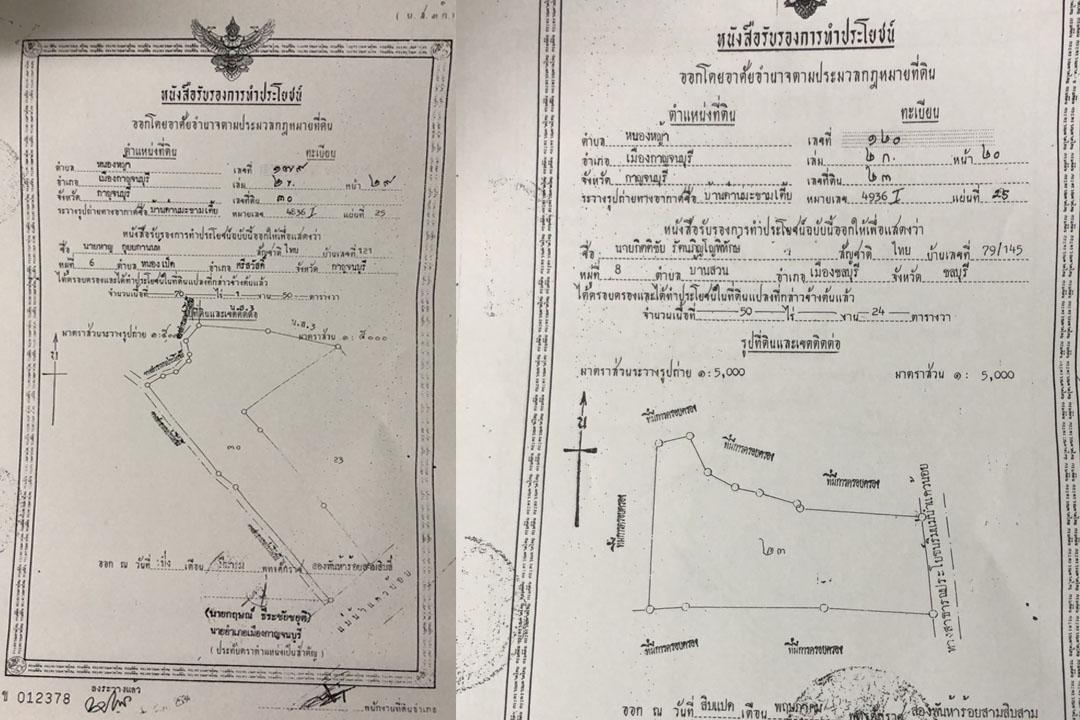 ( น.ส.๓ก )
หนังสือรับรองการทำประโยชน์
ออกโดยอาศัยอำนาจตามประมวลกฎหมายที่ดิน
ตำแหน่งที่ดิน ทะเบียน
ตำบล หนองหญ้า เลขที่ ๑๗๙
อำเภอ เมืองกาญจนบุรี เล่ม หน้า ๒๙
จังหวัด กาญจนบุรี เลขที่ดิน ๓๐
ระวางรูปถ่ายทางอากาศชื่อ บ้านท่ามะขามเตี้ย หมายเลข 4836 I แผ่นที่ 25
หนังสือรับรองการทำประโยชน์ฉบับนี้ออกให้เพื่อแสดงว่า
ชื่อ สัญชาติ ไทย บ้านเลขที่ 121
หมู่ที่ 6 ตำบล หนองเป็ด อำเภอ ศรีสวัสดิ์ จังหวัด กาญจนบุรี
ได้ครอบครองและได้ทำประโยชน์ในที่ดินแปลงที่กล่าวข้างต้นแล้ว
จำนวนเนื้อที่ 70 ไร่ 1 งาน 50 ตารางวา
รูปที่ดินและเขตติดต่อ
น.ส.3
มาตราส่วนระวางรูปถ่าย ๑:๕๐๐๐ มาตราส่วน ๑: ๕๐๐๐
น
๓๐
23
แม่น้ำแควน้อย
ออก ณ วันที่ เดือน พุทธศักราช สองพันห้าร้อยสามสิบสี่
(นายกฤษณ์ ธีระชัยชยุติ)
นายอำเภอเมืองกาญจนบุรี
( ประทับตราตำแหน่งเป็นสำคัญ )
ข 012378
ลงระวางแล้ว
พนักงานที่ดินอำเภอ
หนังสือรับรองการทำประโยชน์
ออกโดยอาศัยอำนาจตามประมวลกฎหมายที่ดิน
ตำแหน่งที่ดิน ทะเบียน
ตำบล หนองหญ้า เลขที่ ๑๒๐
อำเภอ เมืองกาญจนบุรี เล่ม ๒ ก. หน้า ๒๐
จังหวัด กาญจนบุรี เลขที่ดิน ๒๓
ระวางรูปถ่ายทางอากาศชื่อ บ้านท่ามะขามเตี้ย หมายเลข 4936 I แผ่นที่ 25
หนังสือรับรองการทำประโยชน์ฉบับนี้ออกให้เพื่อแสดงว่า
ชื่อ นายกิตติชัย สัญชาติ ไทย บ้านเลขที่ 79/145
หมู่ที่ 8 ตำบล บ้านสวน อำเภอ เมืองชลบุรี จังหวัด ชลบุรี
ได้ครอบครองและได้ทำประโยชน์ในที่ดินแปลงที่กล่าวข้างต้นแล้ว
จำนวนเนื้อที่ 50 ไร่ งาน 24 ตารางวา
รูปที่ดินและเขตติดต่อ
มาตราส่วนระวางรูปถ่าย ๑: 5,000 มาตราส่วน ๑: 5,000
น
ที่มีการครอบครอง
ที่มีการครอบครอง
ที่มีการครอบครอง
ที่มีการครอบครอง
๒๓
ทางสาธารณประโยชน์ริมแม่น้ำแควน้อย
ที่มีการครอบครอง
ที่มีการครอบครอง
ออก ณ วันที่ สิบแปด เดือน พฤษภาคม สองพันห้าร้อยสามสิบสาม